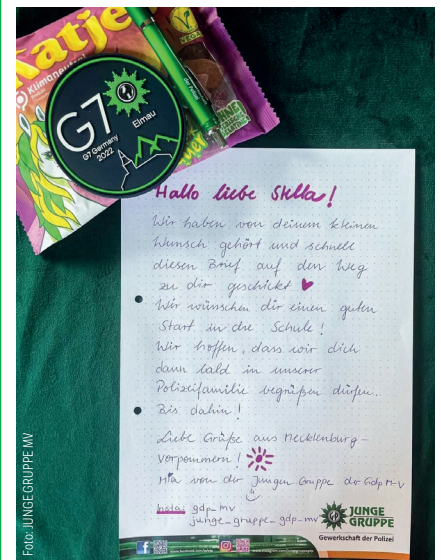 Katje
Klimaneutral
VEGA
G7
G7 Germany
2022
Elmau
JUNGE
GRUPPE
Hallo liebe Stella!
Wir haben von deinem kleinen
Wunsch gehört und schnell
diesen Brief auf den Weg
zu dir geschickt ♥
Wir wünschen dir einen guten
Start in die Schule!
Wir hoffen, dass wir dich
dann bald in unserer
Polizeifamilie begrüßen dürfen.
Bis dahin!
Liebe Grüße aus Mecklenburg-
Vorpommern!
Mia von der Jungen Gruppe der GdP M-V
Insta: gdp_mv
junge_gruppe_gdp_mv
GdP JUNGE
GRUPPE
Gewerkschaft der Polizei
Foto: JUNGE GRUPPE MV